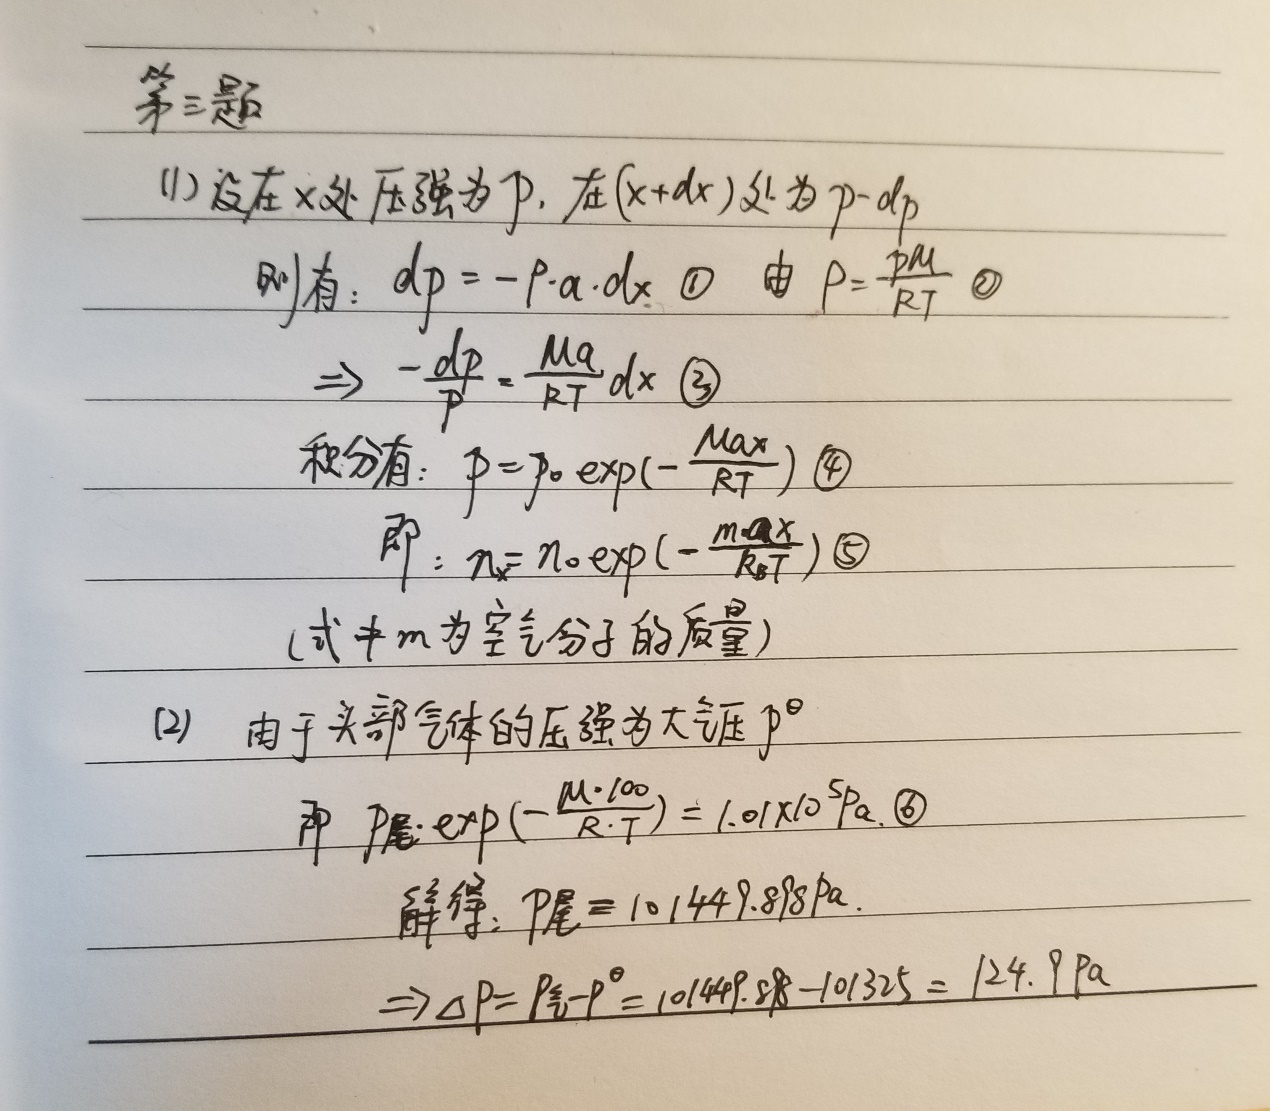 第三题
(1) 设在x处压强为p, 在(x+dx)处为p-dp
则有: dp = -ρ·a·dx ① 由 ρ = pM/RT ②
⇒ -dp/p = Ma/RT dx ③
积分有: p = p₀ exp(-Max/RT) ④
即: nₓ = n₀ exp(-m·ax/k_BT) ⑤
(式中m为空气分子的质量)
(2) 由于头部气体的压强为大气压 p^θ
即 P尾·exp(-M·100/R·T) = 1.01×10⁵Pa. ⑥
解得: P尾 = 101449.898Pa.
⇒ △P = P气-P^θ = 101449.898-101325 = 124.9Pa